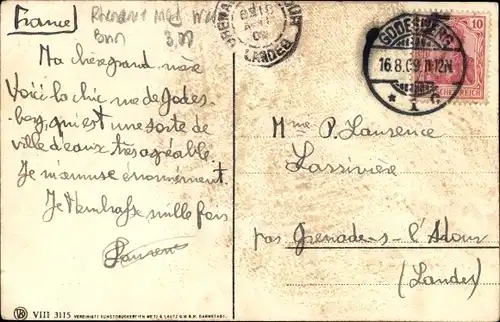 France
Rhénanie
Bonn
GODESBERG
16.8.09.11-12N
10
LANDES
Ma chère grand mère
Voici la chic rue de Godes-
berg, qui est une sorte de
ville d'eaux très agréable.
Je m'amuse énormément.
Je t'embrasse mille fois
Laurence
Mme P. Laurence
Lassivière
par Grenade-s-l'Adour
(Landes)
VIII 3115 VEREINIGTE KUNSTDRUCKEREIEN METZ & LAUTZ G.M.B.H. DARMSTADT.